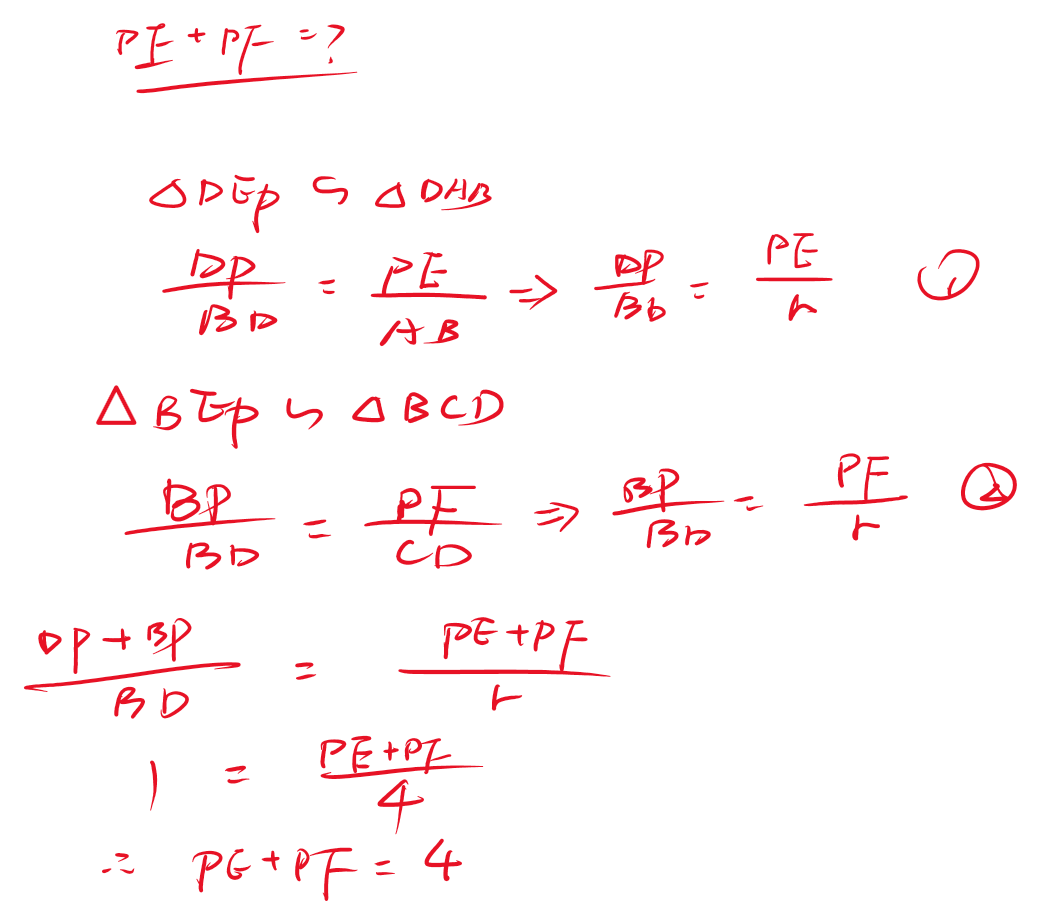 PE + PF = ?
△DEP ∽ △DAB
DP/BD = PE/AB ⇒ DP/BD = PE/r ①
△BEP ∽ △BCD
BP/BD = PF/CD ⇒ BP/BD = PF/r ②
(DP + BP)/BD = (PE + PF)/r
1 = (PE + PF)/4
∴ PE + PF = 4